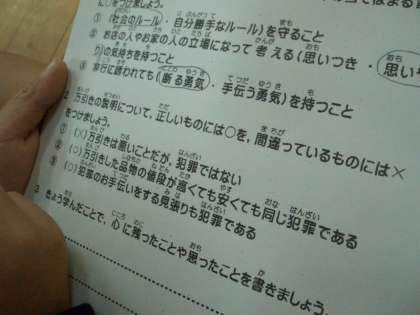 に○をつけましょう。
① (社会のルール・自分勝手なルール)を守ること
② お店の人やお家の人の立場になって考える(思いつき・思い
り)の気持ちを持つこと
③ 非行に誘われても(断る勇気・手伝う勇気)を持つこと
2 万引きの説明について、正しいものには○を、間違っているものには×
をつけましょう。
① (×)万引きは悪いことだが、犯罪ではない
② (○)万引きした品物の値段が高くても安くても同じ犯罪である
③ (○)犯罪のお手伝いをする見張りも犯罪である
3 きょう学んだことで、心に残ったことや思ったことを書きましょう。